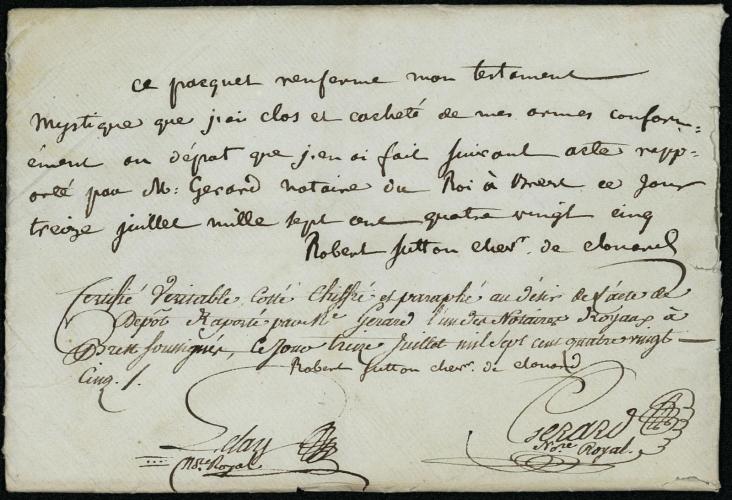 ce pacquet renferme mon testament
Mystique que j'ai clos et cacheté de mes armes conform=
ément au dépat que j'en ai fait suivant acte rapp=
orté par M: Gerard notaire du Roi à Brest ce jour
treize juillet mille sept cent quatre vingt cinq
Robert Sutton chevr. de clonard
Certifié Veritable Cotté Chiffré et paraphé au désir de l'acte de
Depôt Raporté par Me Gerard l'un des Notaires Royaux à
Brest Soussignés, Ce Jour treize Juillet mil Sept Cent quatre vingt
Cinq. /.
Robert Sutton chevr. de clonard
Nre Royal
Gerard
Nore Royal.